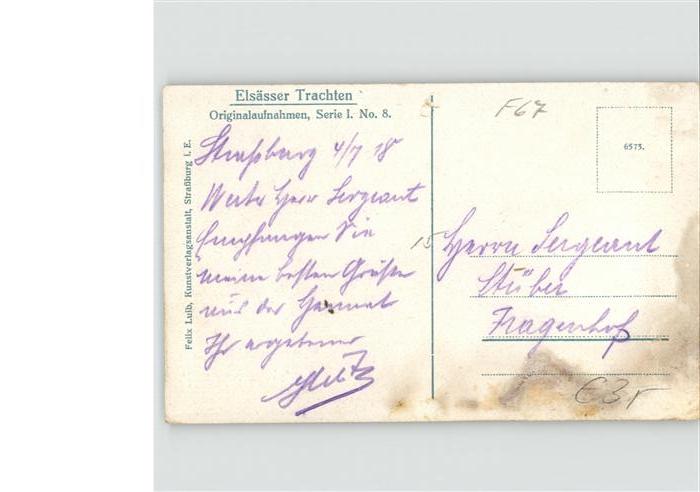 Elsässer Trachten
Originalaufnahmen, Serie I. No. 8.
Felix Luib, Kunstverlagsanstalt, Straßburg i. E.
Straßburg 4/7 18
Werter Herr Sergeant
Empfangen Sie
meine besten Grüße
aus der Heimat
Ihr ergebener
F67
6575.
15
Herrn Sergeant
Stüber
Hagenhof
€3,-